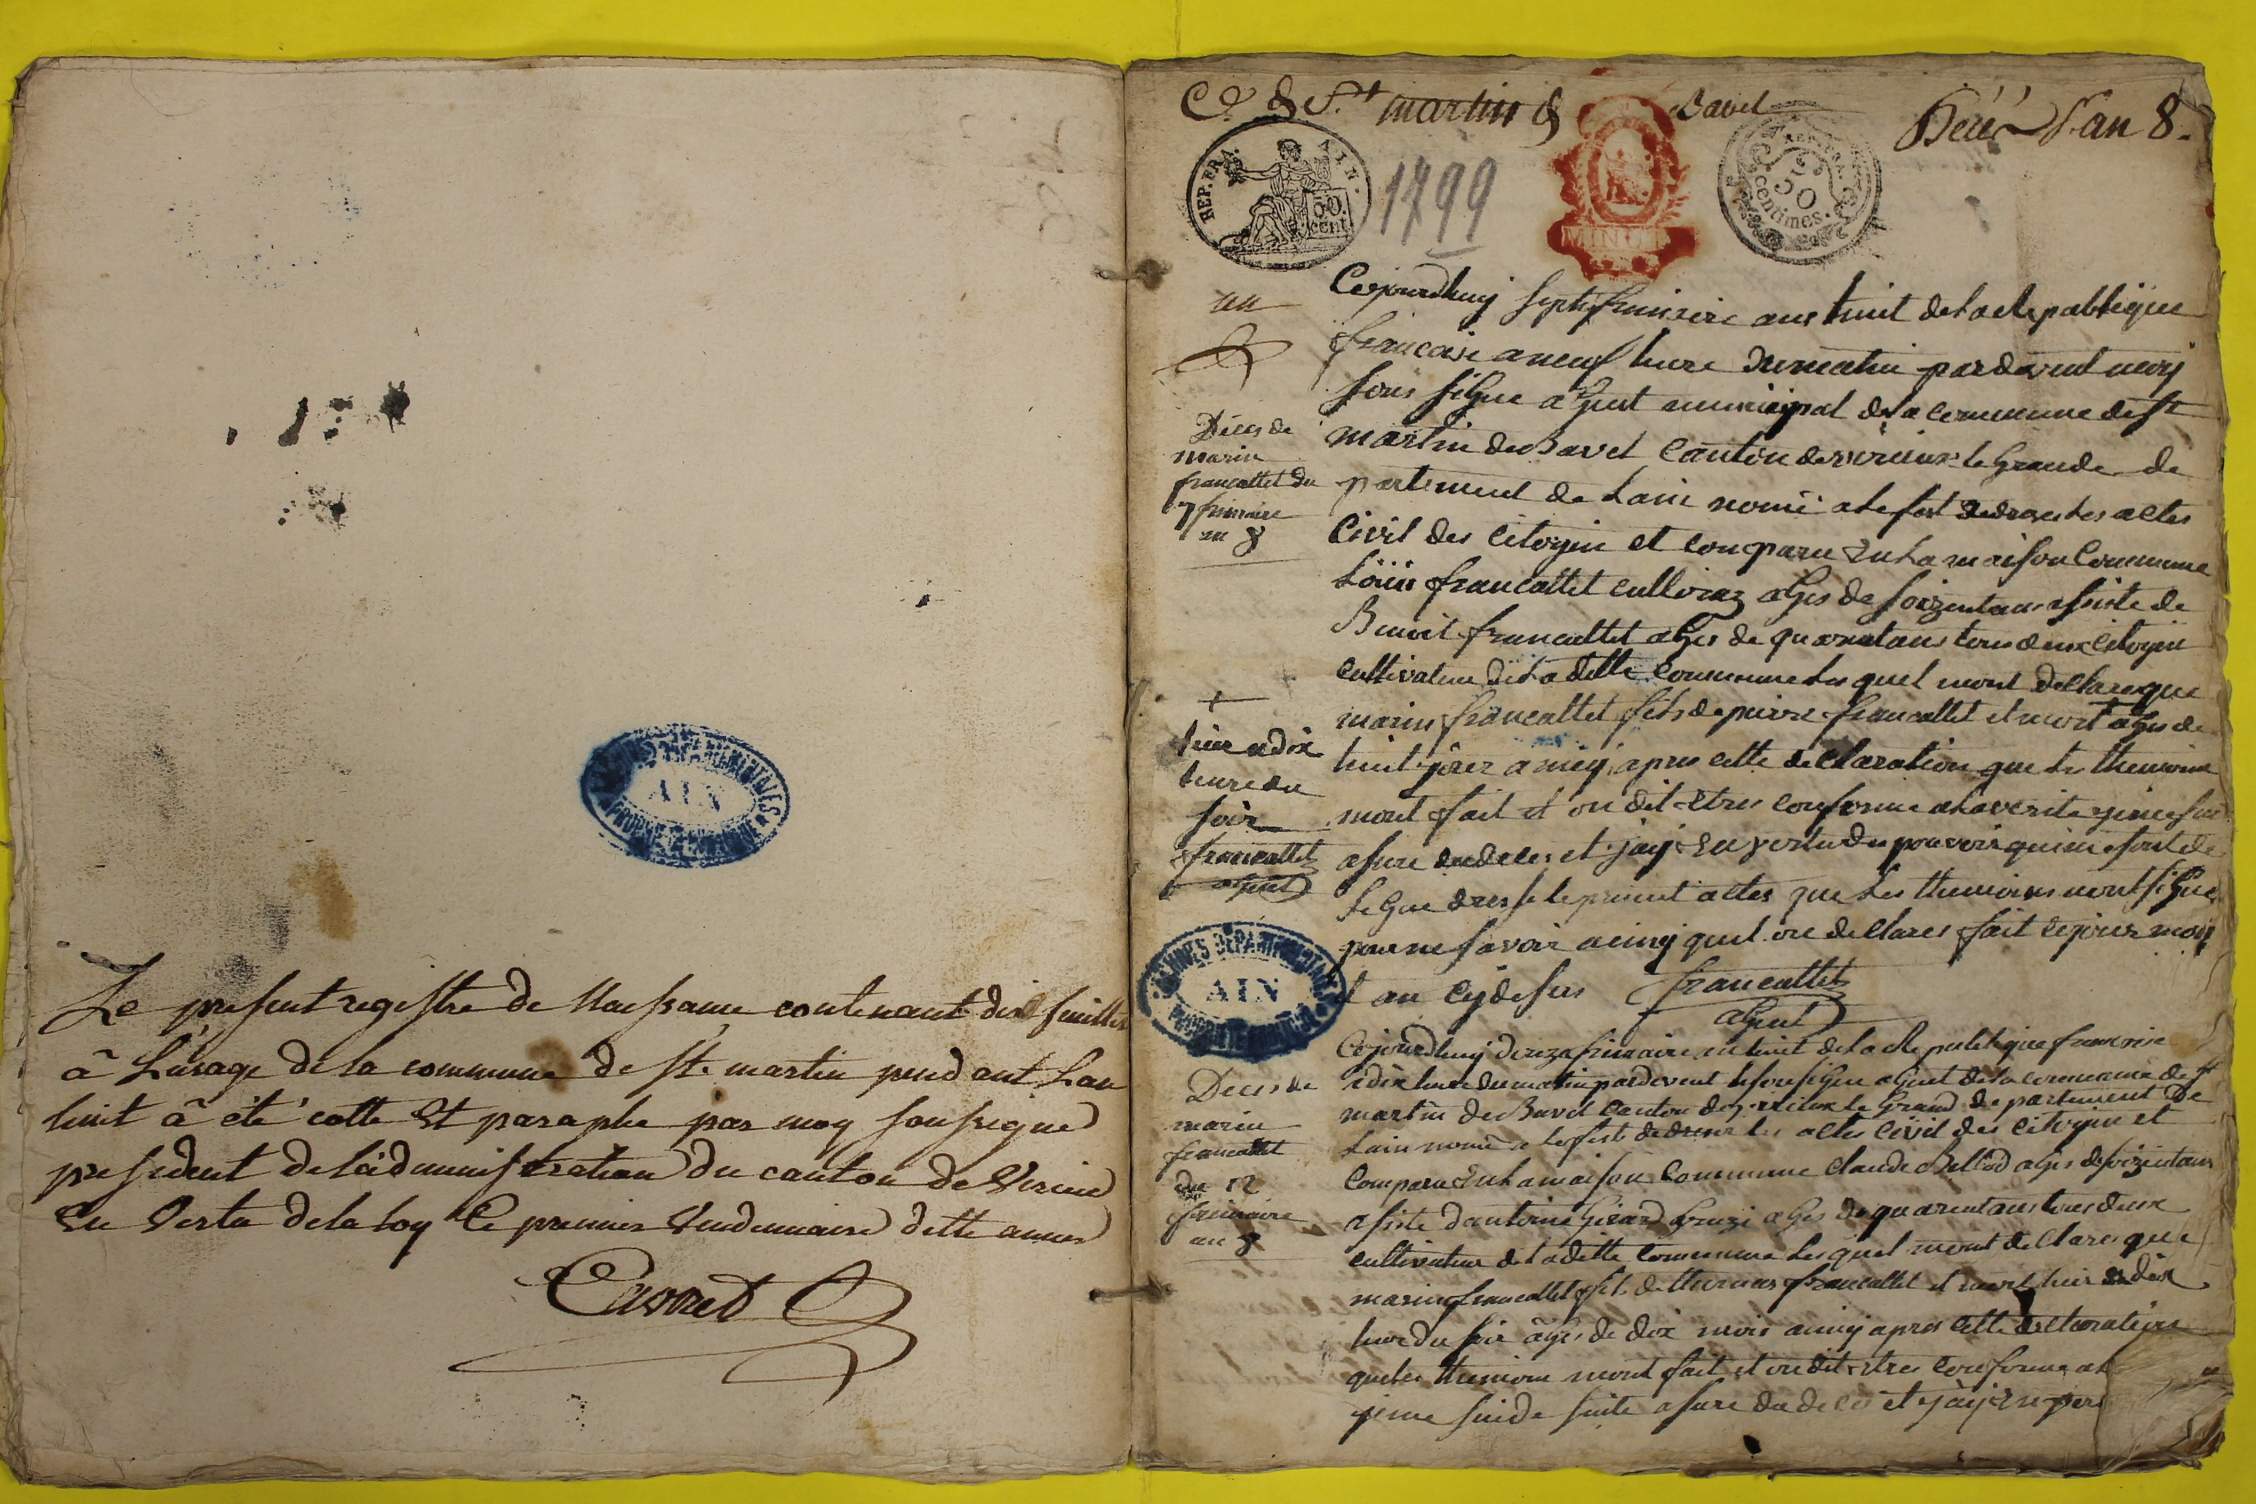 Le present registre de Naissance contenant dix feuilles
à Lusage de la commune de St. martin pendant Lan
huit à été cotté Et paraphe par moy soussigné
president de l'administration du canton de Virieu
En Vertu de la Loy Ce premier Vendemiaire ditte annee
ARCHIVES DÉPARTEMENTALES
AIN
PROPRIÉTÉ PUBLIQUE
Cne de St martin de Bavel
Décés L'an 8.
REP. FRA. AIN.
50 cent
1799
MINUTE
50 centimes.
un
Decès de
marin
francallet du
7 frimaire
an 8
Cejourdhuy sept frimaire ans huit de La Republique
francaise a neuf heure du matin par devent moy
sous signe agent municipal de la commune de St
martin de Bavel Canton de virieux le grande de
partement de Lain nomé a le fest de dresser les actes
Civil des Citoyin et comparu en La maison Commune
Loüis francallet cultivaz ages de soizentans assiste de
Benoit francallet ages de quarantans tous deux Citoyin
cultivateur de La ditte commune Les quel mont declare que
marin francallet fils de pierre francallet et mort ages de
huit jour ainçy apres cette declaration que Les themoins
mont fait et on dit Etres conforme a la verite
asure du deces et jay En vertu du pouvoir qui me sont de
Legue dresse le present actes que Les themoins nont signe
pour ne savoir ainçy quil on declares fait le jour mois
et an cy desus francallet
agent
+
hier a dix
heure du
soir
francallet
agent
ARCHIVES DÉPARTEMENTALES
AIN
PROPRIÉTÉ PUBLIQUE
Deces de
marin
francallet
du 12
frimaire
an 8
Cejourdhuy douze frimaire an huit de La Republique francaise
a dix heure du matin par devent le sousigne agent de la commune de St
martin de Bavel Canton de virieux le Grand departement De
Lain nomé a le fest de dresser les actes Civil des Citoyin et
Comparu En La maison Commune Claude Bellod ages de soizentans
asiste dantoine Girard ages de quarentans tous deux
cultivateur de La ditte Commune Les quel mont declares que
marin francallet fils de thomas francallet et mort hier a dix
heure du soir âges de dix mois ainçy apres cette declaration
que les themoins mont fait et on dit Etres conforme
suide suite asure du deces et jay En